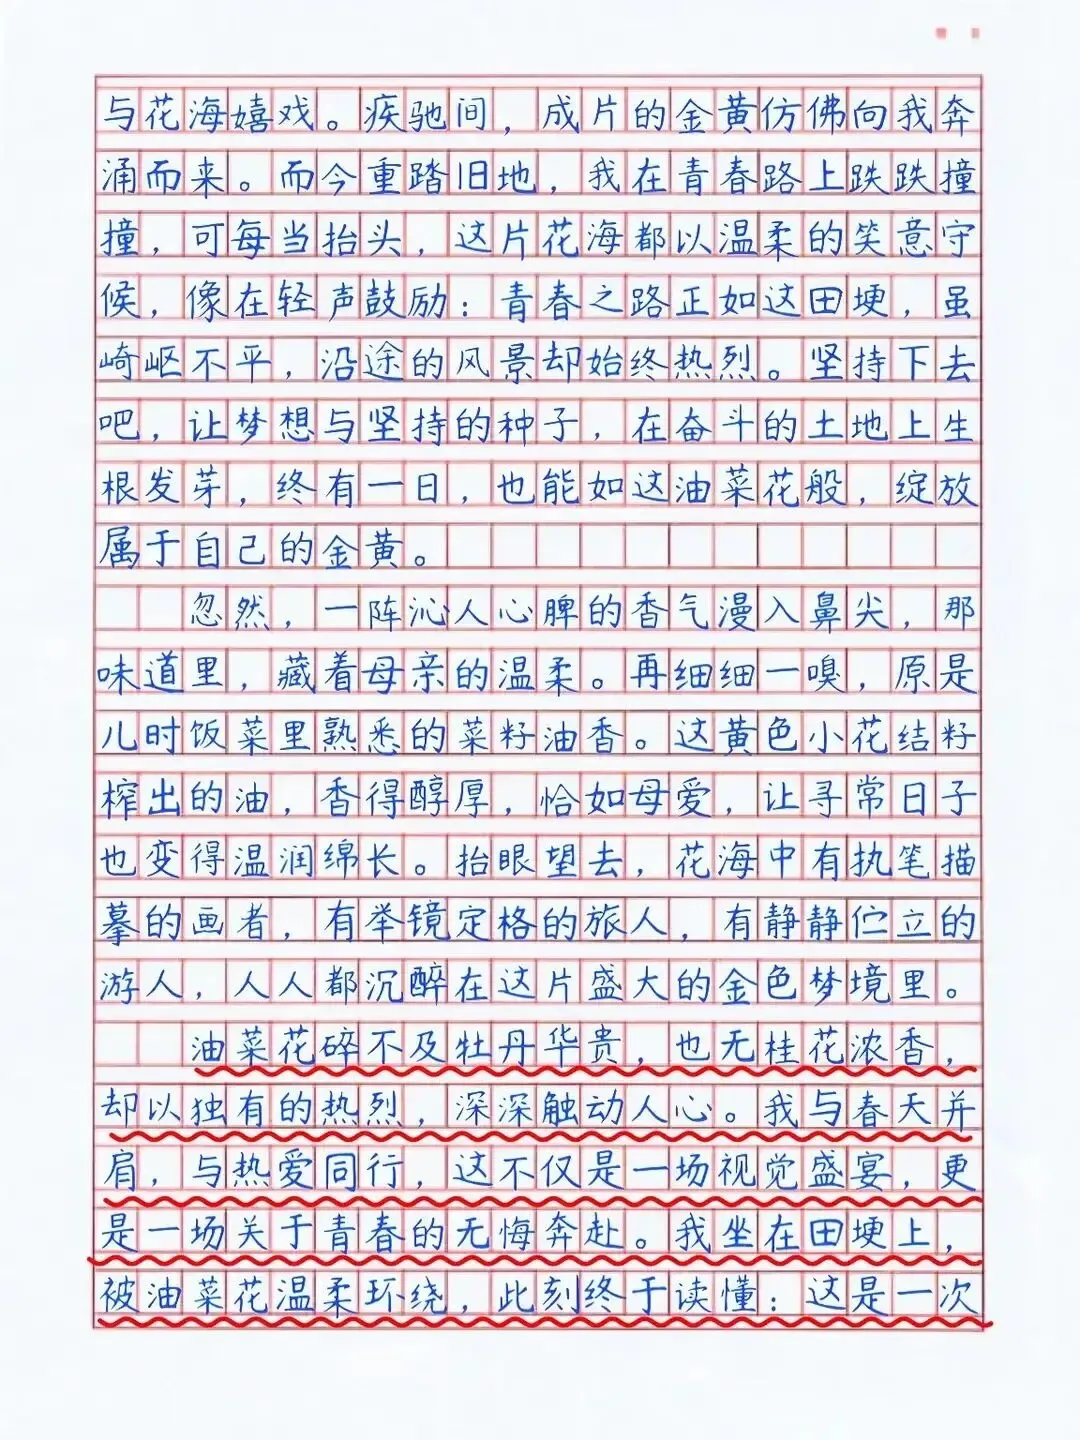 与花海嬉戏。疾驰间，成片的金黄仿佛向我奔
涌而来。而今重踏旧地，我在青春路上跌跌撞
撞，可每当抬头，这片花海都以温柔的笑意守
候，像在轻声鼓励：青春之路正如这田埂，虽
崎岖不平，沿途的风景却始终热烈。坚持下去
吧，让梦想与坚持的种子，在奋斗的土地上生
根发芽，终有一日，也能如这油菜花般，绽放
属于自己的金黄。
忽然，一阵沁人心脾的香气漫入鼻尖，那
味道里，藏着母亲的温柔。再细细一嗅，原是
儿时饭菜里熟悉的菜籽油香。这黄色小花结籽
榨出的油，香得醇厚，恰如母爱，让寻常日子
也变得温润绵长。抬眼望去，花海中有执笔描
摹的画者，有举镜定格的旅人，有静静伫立的
游人，人人都沉醉在这片盛大的金色梦境里。
油菜花碎不及牡丹华贵，也无桂花浓香，
却以独有的热烈，深深触动人心。我与春天并
肩，与热爱同行，这不仅是一场视觉盛宴，更
是一场关于青春的无悔奔赴。我坐在田埂上，
被油菜花温柔环绕，此刻终于读懂：这是一次